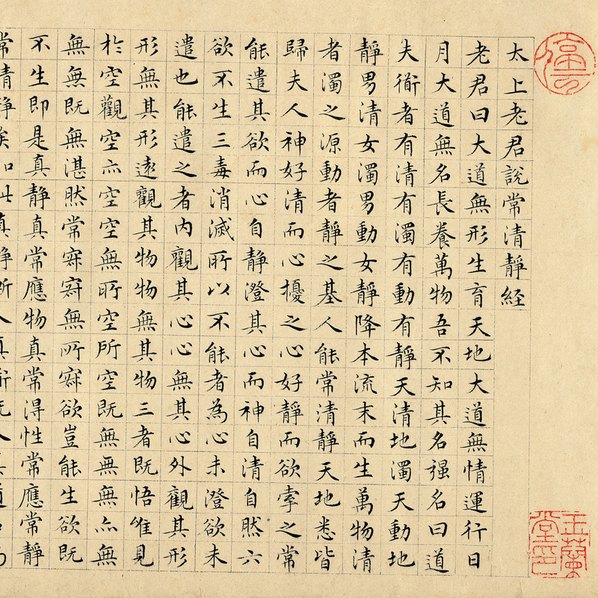 太上老君說常清靜經
老君曰大道無形生育天地大道無情運行日
月大道無名長養萬物吾不知其名强名曰道
夫衜者有清有濁有動有靜天清地濁天動地
靜男清女濁男動女靜降本流末而生萬物清
者濁之源動者靜之基人能常清靜天地悉皆
歸夫人神好清而心擾之心好靜而欲牽之常
能遣其欲而心自靜澄其心而神自清自然六
欲不生三毒消滅所以不能者為心未澄欲未
遣也能遣之者內觀其心心無其心外觀其形
形無其形遠觀其物物無其物三者既悟唯見
於空觀空亦空空無所空所空既無無無亦無
無無既無湛然常寂寂無所寂欲豈能生欲既
不生即是真靜真常應物真常得性常應常靜
常清靜矣如此真靜
玉蘭堂印